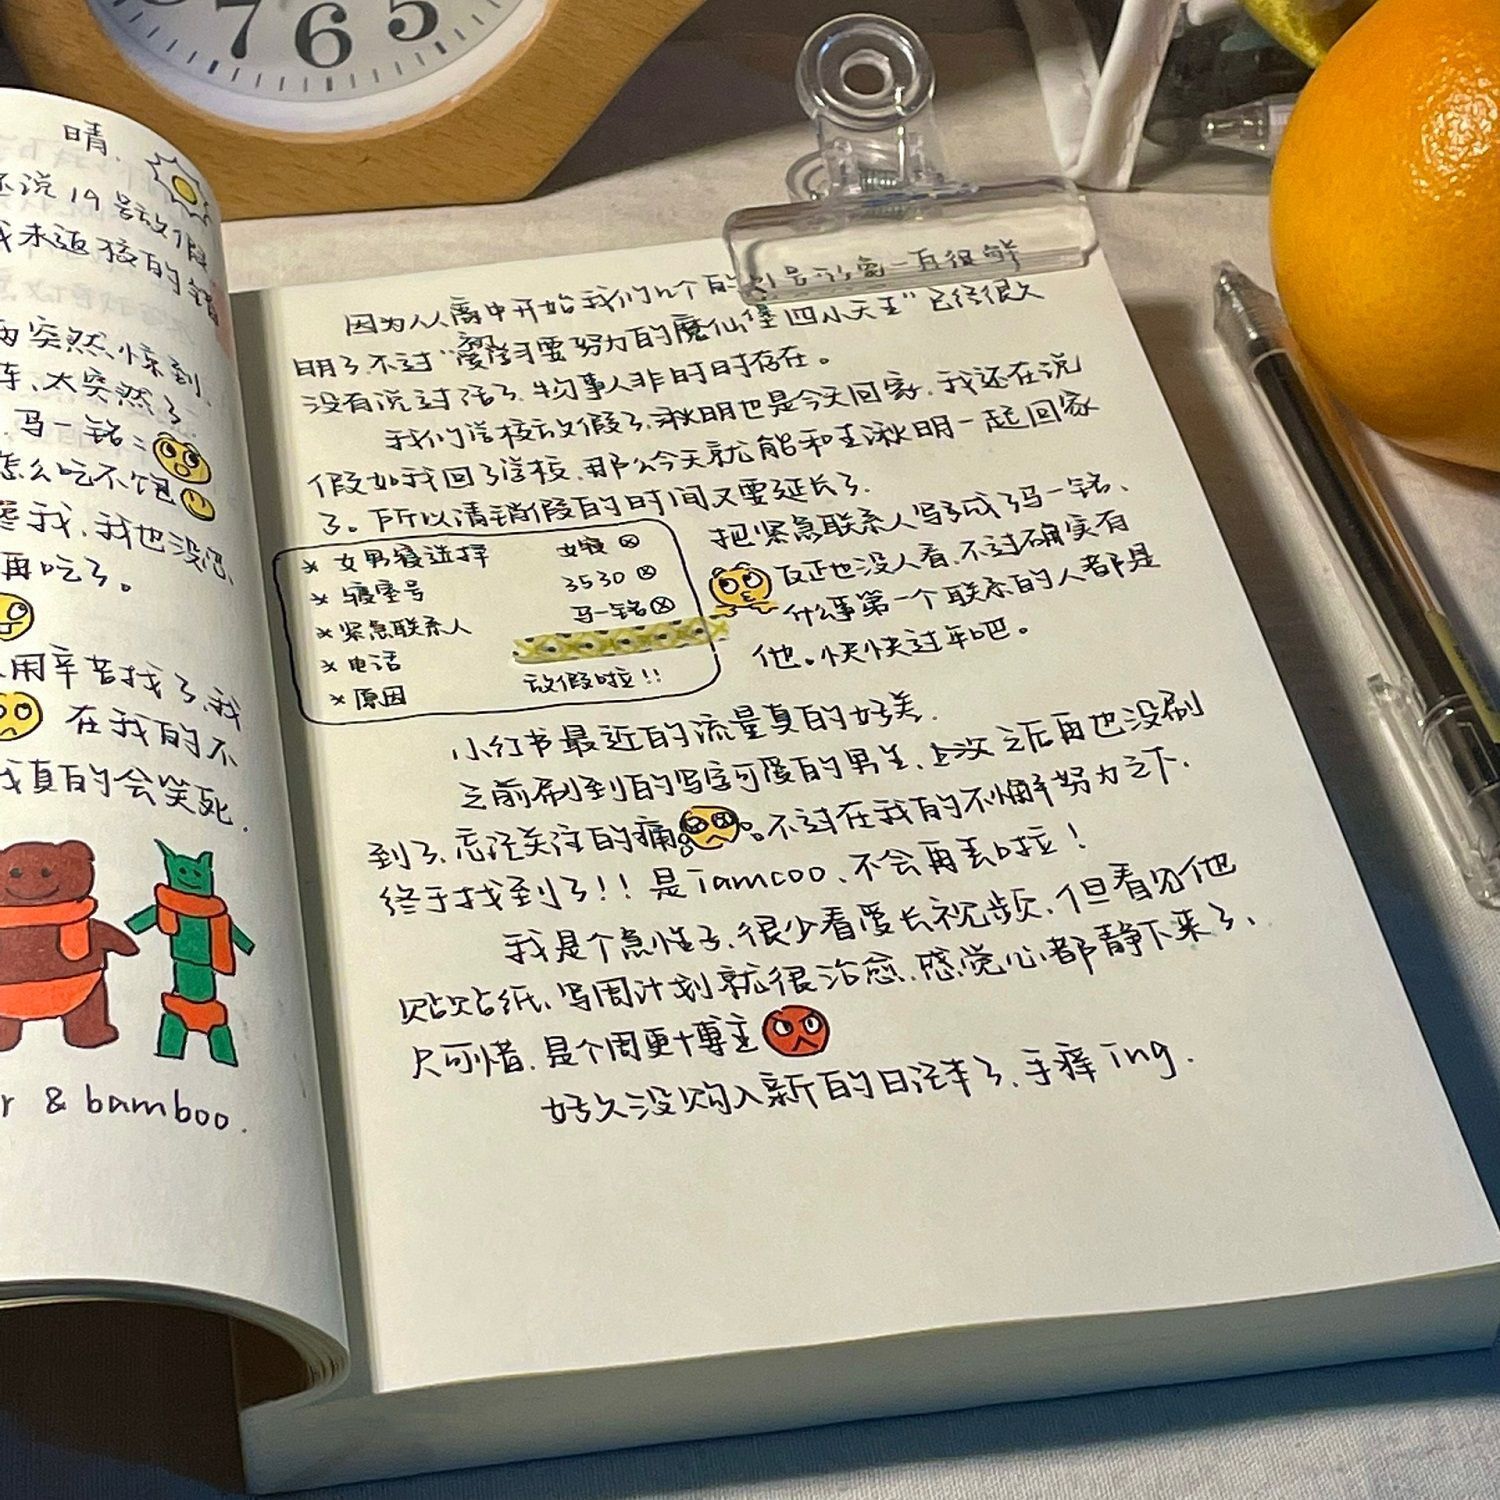 7 6 5
晴.
还说19号放假
我未返校的销
两突然,惊到,
车、太突然了
马一铭:
怎么吃不饱
我,我也没
再吃了。
用辛苦找了,我
在我的不
我真的会笑死.
r & bamboo.
因为从高中开始我们几个的别号形象一直很鲜
明了,不过“爱学习要努力的魔仙堡四小天王”已经很久
没有说过话了,物事人非时时存在。
我们学校放假了,湫明也是今天回家,我还在说
假如我回了学校,那么今天就能和王湫明一起回家
了。所以清销假的时间又要延长了.
* 女男寝选择 女寝
* 寝室号 3530
* 紧急联系人 马一铭
* 电话
* 原因 放假啦!!
把紧急联系人写成了马一铭、
反正也没人看,不过确实有
什么事第一个联系的人都是
他。快快过年吧。
小红书最近的流量真的好差.
之前刷到的写字可爱的男生,上次之后再也没刷
到了,忘没关注的痛。不过在我的不懈努力之下,
终于找到了!!是iamcoo、不会再丢啦!
我是个急性子,很少看爱长视频,但看见他
贴贴纸、写周计划就很治愈,感觉心都静下来了、
只可惜,是个周更博主
好久没购入新的日记本了,手痒ing.